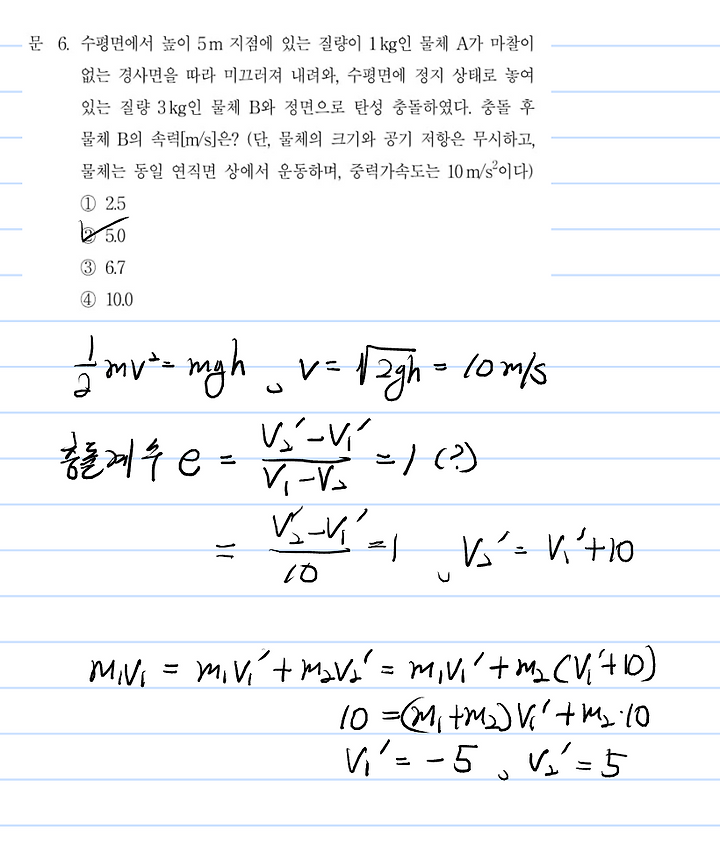 문 6. 수평면에서 높이 5 m 지점에 있는 질량이 1 kg인 물체 A가 마찰이
없는 경사면을 따라 미끄러져 내려와, 수평면에 정지 상태로 놓여
있는 질량 3 kg인 물체 B와 정면으로 탄성 충돌하였다. 충돌 후
물체 B의 속력[m/s]은? (단, 물체의 크기와 공기 저항은 무시하고,
물체는 동일 연직면 상에서 운동하며, 중력가속도는 10 m/s²이다)
① 2.5
② 5.0
③ 6.7
④ 10.0
1/2 mv² = mgh, v = √2gh = 10 m/s
충돌계수 e = (V₂′-V₁′)/(V₁-V₂) = 1 (?)
= (V₂′-V₁′)/10 = 1, V₂′ = V₁′+10
m₁V₁ = m₁V₁′ + m₂V₂′ = m₁V₁′ + m₂(V₁′+10)
10 = (m₁+m₂)V₁′ + m₂·10
V₁′ = -5, V₂′ = 5